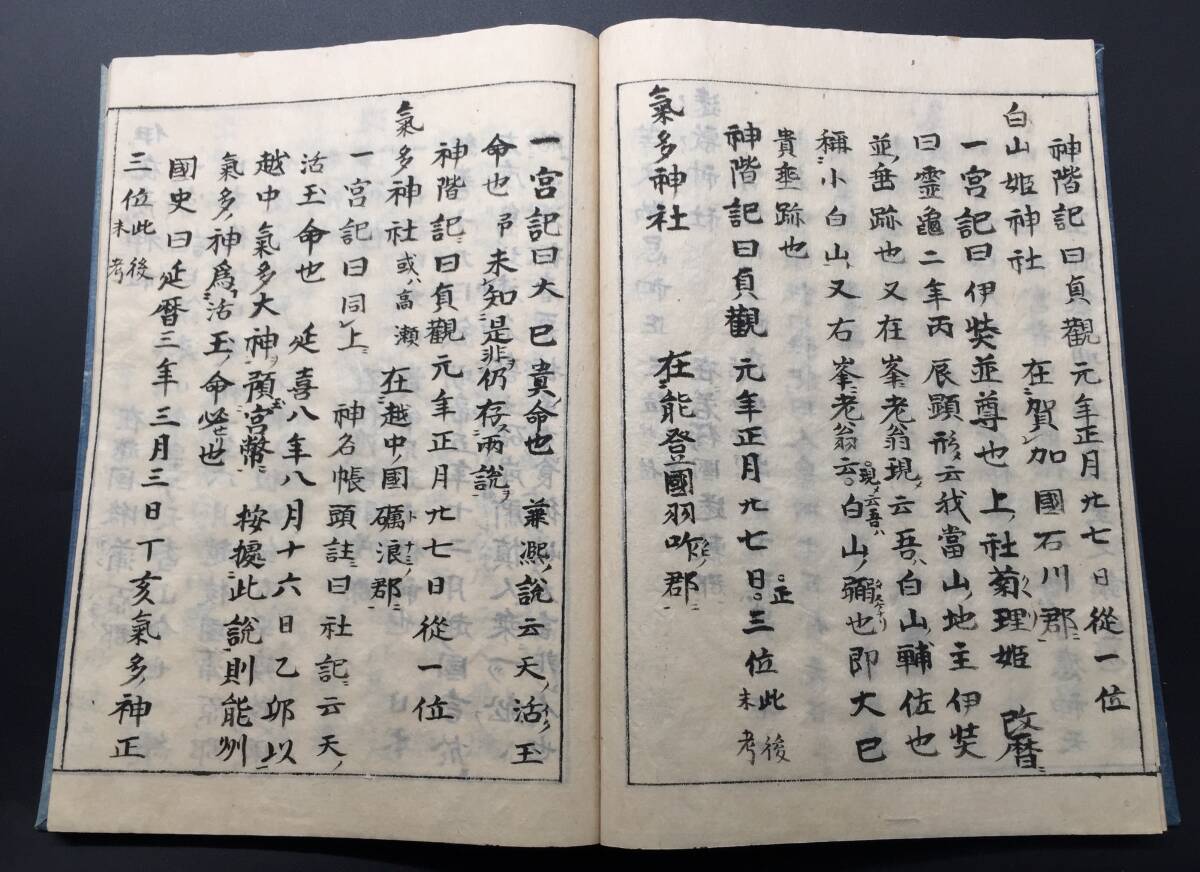 神階記曰貞觀元年正月廾七日從一位
白山姬神社　在賀加國石川郡ニ
一宮記曰伊奘並尊也上社菊理姬　改曆ニ
曰靈龜二年丙辰顕形云我當山地主伊奘
並垂跡也又在峯老翁現云吾ハ白山輔佐也
稱ニ小白山又右峯ニ老翁云白山彌也即大已
現〆云吾ハ
貴垂跡也
神階記曰貞觀元年正月廾七日正三位此後未考
氣多神社　在能登國羽咋郡ニ
一宮記曰大已貴命也　兼凞說云天活玉
命也　未知是非仍存兩說
神階記曰貞觀元年正月廾七日從一位
氣多神社或ハ高瀬　在越中國礪浪郡ニ
一宮記曰同上ニ　神名帳頭註曰社記云天
活玉命也　延喜八年八月十六日乙卯以
越中氣多大神預官幣ニ　按據此說則能州
氣多神爲活玉命必也
國史曰延曆三年三月三日丁亥氣多神正
三位此後未考